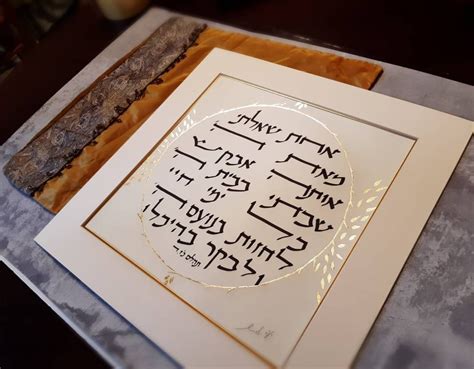 אחת שאלתי
מאת ה'
אותה אבקש
שבתי בבית ה'
כל ימי חיי
לחזות בנועם ה'
ולבקר בהיכלו
תהלים כז ד